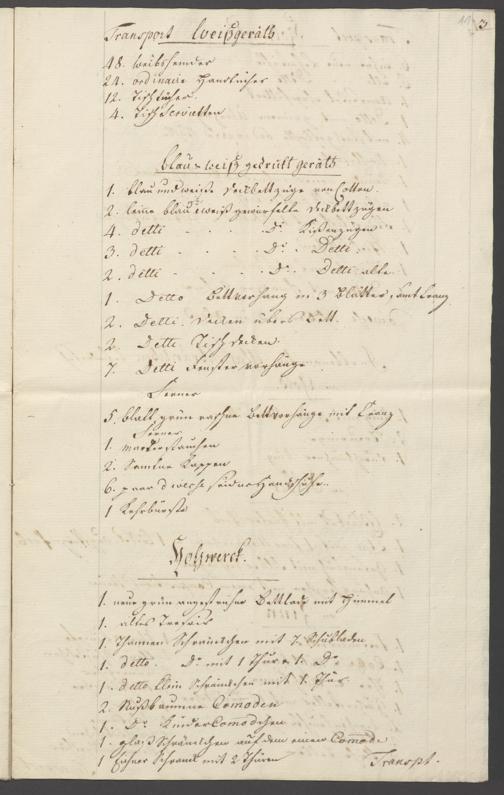 3
Transport Weißgeräth
48. Weibshemder
24. ordinaire Handtücher
12. Tischtücher
4. Tisch Servietten
blau & weiß gedrükt geräth
1. blau und weiße Dekbettzüge von Cotton.
2. leine blau & weiß gewürfelte Dekbettzügen
4. detti - - - Do. Kißenzügen
3. detti - - - Do. Detti.
2. detti - - - Do. Detti alte
1. Detto Bettvorhang in 3 Blätter, samt Cranz
2. Detti. Decken übers Bett.
2. Detti Tisch decken.
7. Detti Fenster vorhänge
Ferner
5. blatt grün Bettvorhänge mit Cranz
Ferner
1.
2. Samtne Kappen
6. paar seidne Handschuhe.
1 Kehrbürste
Holzwerck.
1. neue grün angestrichne Bettlade mit Himmel
1. altes Tresoir
1. Thannen Schränckchen mit 2. Schubladen
1. detto. Do. mit 1 Thür & 1. Do
1. detto klein Schränckchen mit 1. Thür
2. Nußbaumne Comoden
1. Do. Kinder Comodchen
1. glaß Schränckchen auf dem einen Comode
1 Schranck mit 2 Thüren
Transpt.